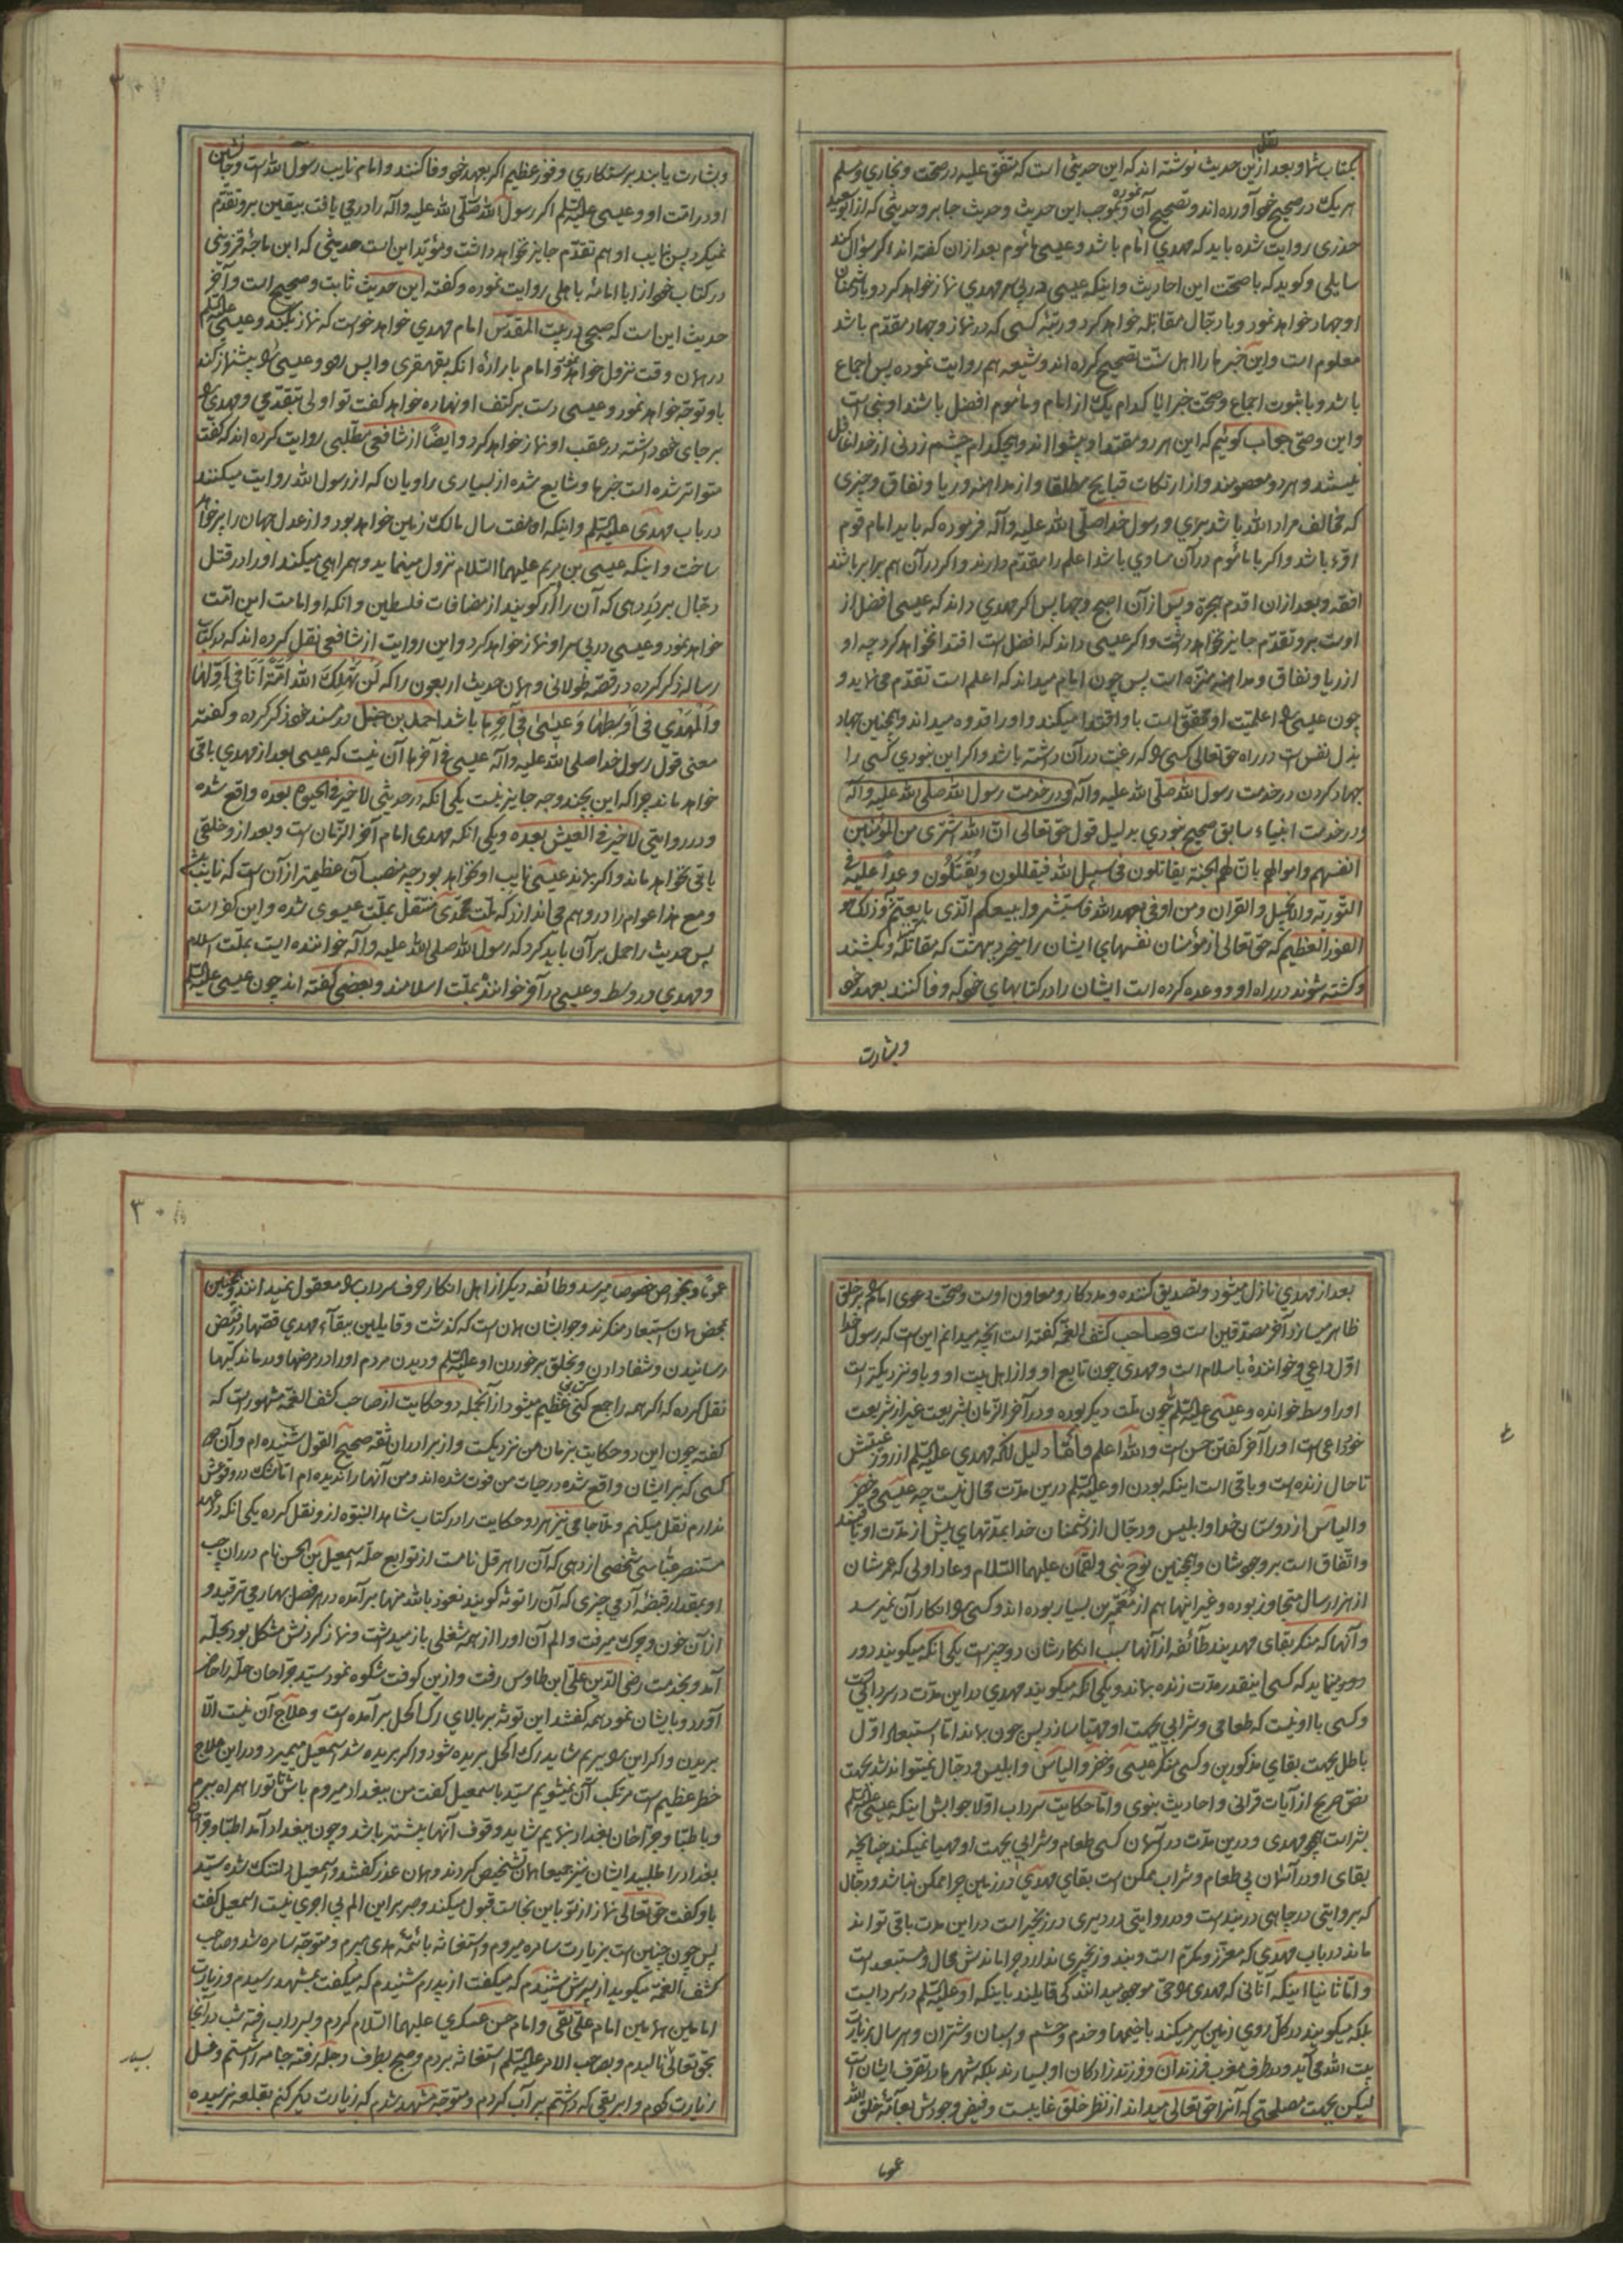 نقل
بکتاب شما و بعد ازین حدیث نوشته اند که این حدیثی است که متفق علیه در صحت و بخاری و مسلم
هر یک در صحیح خود آورده اند و تصحیح آن نموده و بموجب این حدیث و حدیث جابر و حدیثی که از ابوسعید
خدری روایت شده باید که مهدی امام باشد و عیسی مأموم بعد ازان گفته اند اگر سؤال کند
سایلی و گوید که با صحت این احادیث و اینکه عیسی در پی سر مهدی نماز خواهد کرد و با دشمنان
او جهاد خواهد نمود و با دجّال مقاتله خواهد کرد و رتبهٔ کسی که در نماز و جهاد مقدّم باشد
معلوم است و این خبرها را اهل سنّت تصحیح کرده اند و شیعه هم روایت نموده پس اجماع
باشد و با ثبوت اجماع و صحت خبر ایا کدام یک از امام و مأموم افضل باشند او نبی است
و این وصی جواب گوئیم که این هر دو مقتدا و پیشوا اند و هیچکدام چشم زدنی از خدا غافل
نیستند و هر دو معصومند و از ارتکاب قبایح مطلقا و از مداهنه و ریا و نفاق و چیزی
که مخالف مراد الله باشد بری و رسول خدا صلّی الله علیه و آله فرموده که باید امام قوم
اقرء باشد و اگر با مأموم در آن مساوی باشد اعلم را مقدّم دارند و اگر در آن هم برابر باشند
افقه و بعد ازان اقدم هجرة و پس از آن اصبح وجها پس اگر مهدی داند که عیسی افضل از
اوست برو تقدّم جایز نخواهد داشت و اگر عیسی داند که افضل است اقتدا نخواهد کرد چه او
از ریا و نفاق و مداهنه منزّه است پس چون امام میداند که اعلم است تقدّم می نماید و
چون عیسی را اعلمیّت او محقّق است باو اقتدا میکند و او را قدوه میداند و همچنین جهاد
بذل نفس است در راه حق تعالی کسی را که رغبت در آن داشته باشد و اگر این نبودی کسی را
جهاد کردن در خدمت رسول الله صلّی الله علیه و آله و در خدمت رسول الله صلی الله علیه و آله
و در خدمت انبیاء سابق صحیح نبودی بدلیل قول حق تعالی انّ الله اشتری من المؤمنین
انفسهم و اموالهم بانّ لهم الجنة یقاتلون فی سبیل الله فیقتلون و یُقتَلُون وعداً علیه فی
التوریة و الانجیل و القران و من اوفی بعهده من الله فاستبشروا ببیعکم الّذی بایعتم و ذلک هو
الفوز العظیم که حق تعالی از مؤمنان نفسهای ایشان را میخرد ببهشت که مقاتله و بکشند
و کشته شوند در راه او و وعده کرده است ایشان را در کتابهای خود که وفا کنند بعهد خود
و بشارت
و بشارت یابند برستگاری و فوز عظیم اگر بعهد خود وفا کنند و امام نایب رسول الله است و جانشین
او در امّت او و عیسی علیه السّلم اگر رسول الله صلّی الله علیه و آله را در می یافت بیقین برو تقدّم
نمیکرد پس نایب او هم تقدّم جایز نخواهد داشت و مؤید این است حدیثی که ابن ماجهٔ قزوینی
در کتاب خود از ابا امامهٔ باهلی روایت نموده و گفته این حدیث ثابت و صحیح است و آخر
حدیث این است که صبحی در بیت المقدّس امام مهدی خواهد خواست که نماز بکند و عیسی علیه السّلم
در همان وقت نزول خواهد نمود و امام باراده انکه بقهقری واپس رود و عیسی را پیشنماز کند
باو توجّه خواهد نمود و عیسی دست بر کتف او نهاده خواهد گفت تو اولی بتقدّمی و مهدی را
بر جای خود داشته در عقب او نماز خواهد کرد و ایضاً از شافعی مطّلبی روایت کرده اند که گفت
متواتر شده است خبرها و شایع شده از بسیاری راویان که از رسول الله روایت میکنند
در باب مهدی علیه السّلم و اینکه او هفت سال مالک زمین خواهد بود و از عدل جهان را پر خواهد
ساخت و اینکه عیسی بن مریم علیهما السّلام نزول مینماید و همراهی میکند او را در قتل
دجّال بر در دهی که آن را لُدّ گویند از مضافات فلسطین و انکه او امامت این امّت
خواهد نمود و عیسی در پی سر او نماز خواهد کرد و این روایت از شافعی نقل کرده اند که در کتاب
رساله ذکر کرده در قصّهٔ طولانی و همان حدیث اربعون را که لَن تهلکَ اُمّةٌ اَنَا فی اَوّلها
وَ المَهدی فی اَوسطها وَ عیسیٰ فی آخِرِها باشد احمد بن حنبل در مسند خود ذکر کرده و گفته
معنی قول رسول خدا صلی الله علیه و آله عیسی فی آخرها آن نیست که عیسی بعد از مهدی باقی
خواهد ماند چرا که این بچند وجه جایز نیست یکی انکه در حدیثی لا خیر فی الحیوة بعده واقع شده
و در روایتی لا خیر فی العیش بعده و یکی انکه مهدی امام آخر الزّمان است و بعد از و خلقی
باقی نخواهد ماند و اگر بماند عیسی نایب او نخواهد بود چه منصب آن عظیمتر از آن است که نایب باشد
و مع هذا عوام را در وهم می اندازد که ملّت محمّدی منتقل بملّت عیسوی شده و این کفر است
پس حدیث را حمل بر آن باید کرد که رسول الله صلی الله علیه و آله خواننده ایست بملّت اسلام
و مهدی در وسط و عیسی در آخر خوانندهٔ بملّت اسلامند و بعضی گفته اند چون عیسی علیه السّلم
بعد از مهدی نازل میشود و تصدیق کننده و مددکار و معاون اوست و صحّت دعوی امام را بر خلق
ظاهر میسازد آخر مصدّقین است و صاحب کشف الغمّه گفته است آنچه میدانم این است که رسول خدا
اوّل داعی و خوانندهٔ باسلام است و مهدی چون تابع او و از اهل بیت او و باو نزدیکتر است
او را وسط خوانده و عیسی علیه السّلم چون ملّت دیگر بوده و در آخر الزّمان بشریعت غیر از شریعت
خود داعی است او را آخر گفتن حسن است و الله اعلم و امّا دلیل انکه مهدی علیه السّلم از روز غیبتش
تا حال زنده است و باقی است اینکه بودن او علیه السّلم درین مدّت محال نیست چه عیسی و خضر
و الیاس از دوستان خدا و ابلیس و دجّال از دشمنان خدا بمدّتهای بیش از مدّت او باقیند
و اتّفاق است بر وجود شان و همچنین نوح نبی و لقمان علیهما السّلام و عاد اولی که عمرشان
از هزار سال متجاوز بوده و غیر اینها هم از معمّرین بسیار بوده اند و کسی را انکار آن نمیرسد
و آنها که منکر بقای مهدیند طائفه از آنها سبب انکارشان دو چیز است یکی انکه میگویند دور
دور مینماید که کسی اینقدر مدّت زنده بماند و یکی انکه میگویند مهدی در این مدّت در سردابی است
و کسی با او نیست که طعامی و شرابی بجهت او مهیّا سازد پس چون بماند امّا استبعاد اوّل
باطل بجهت بقای مذکورین و کسی منکر عیسی و خضر و الیاس و ابلیس و دجّال نمیتواند شد بجهت
نصّ صریح از آیات قرانی و احادیث نبوی و امّا حکایت سرداب اوّلا جوابش اینکه عیسی علیه السّلم
بشر است همچو مهدی و درین مدّت در آسمان کسی طعام و شرابی بجهت او مهیا نمیکند چنانچه
بقای او در آسمان بی طعام و شراب ممکن است بقای مهدی در زمین چرا ممکن نباشد و دجّال
که بروایتی در چاهی در بند است و در روایتی در دیری در زنجیر است در این مدت باقی تواند
ماند در باب مهدی که معزّز و مکرّم است و بند و زنجیری ندارد چرا ماندنش محال و مستبعد است
و امّا ثانیا اینکه آنانی که مهدی را حیّ موجود میدانند کی قایلند باینکه او علیه السّلم در سردابست
بلکه میگویند در کلّ روی زمین سیر میکند با خیمها و خدم و حشم و اسبان و شتران و هر سال بزیارت
بیت الله می آید و در طرف مغرب فرزندان و فرزند زادگان او بسیارند بلکه شهرها در تصرف ایشان است
لیکن بجهت مصلحتی که آنرا حق تعالی میداند از نظر خلق غایبست و فیض وجودش بعامّهٔ خلق الله
عموما
عموماً و بخواص خصوصا میرسد و طائفه دیگر از اهل انکار حرف سرداب را معقول نمیدانند و همچنین
بمحض همان استبعاد منکرند و جوابشان همان است که گذشت و قایلین ببقآء مهدی قصّها در فیض
رسانیدن و شفا دادن و بخلق برخوردن او علیه السّلم و دیدن مردم او را در مرضها و درماندگیها
نقل کرده که اگر همه را جمع کنی کتابی عظیم میشود از آنجمله دو حکایت از صاحب کشف الغمّه مشهور است که
گفته چون این دو حکایت بزمان من نزدیکست و از برادران ثقه صحیح القول شنیده ام و آن دو
کسی که بر ایشان واقع شده در حیات من فوت شده اند و من آنها را ندیده ام امّا شک در وقوعش
ندارم نقل میکنم و ملّا جامی نیز هر دو حکایت را در کتاب شاهد النبوّه ازو نقل کرده یکی انکه در عهد
مستنصر عبّاسی شخصی از دهی که آن را هرقل نامست از توابع حلّه اسمعیل بن الحسن نام در ران چپ
او بمقدار قبضهٔ آدمی چیزی که آن را توثه گویند نعوذ بالله منها بر آمده در هر فصل بهار می ترقید و
از آن خون و چرک میرفت و الم آن او را از همه شغلی باز میداشت و نماز کردنش مشکل بود بحلّه
آمد و بخدمت رضی الدّین علی ابن طاوس رفت و ازین کوفت شکوه نمود سیّد جرّاحان حلّه را حاضر
آورد و بایشان نمود همه گفتند این توثه بر بالای رگ اکحل بر آمده است و علاج آن نیست الّا
بریدن و اگر این را ببریم شاید رگ اکحل بریده شود و اگر بریده شد اسمعیل میمیرد و در این علاج
خطر عظیم است مرتکب آن نمیشویم سیّد باسمعیل گفت من ببغداد میروم باش تا تو را همراه ببرم
و باطبّا و جرّاحان بغداد نمایم شاید وقوف آنها بیشتر باشد و چون ببغداد آمد اطبّا و جرّاحان
بغداد را طلبید ایشان نیز جمیعا همان تشخیص کردند و همان عذر گفتند و اسمعیل دلتنگ شده سیّد
باو گفت حق تعالی نماز از تو باین نجاست قبول میکند و صبر بر این الم بی اجری نیست اسمعیل گفت
پس چون چنین است بزیارت سامره میروم و استغاثه بائمّه هدی میبرم و متوجّه سامره شد و صاحب
کشف الغمّه میگوید از پسرش شنیدم که میگفت از پدرم شنیدم که میگفت بمشهد رسیدم و زیارت
امامین همامین امام علی نقی و امام حسن عسکری علیهما السّلام کردم و بسرداب رفته شب در آن جا
بحق تعالی نالیدم و بصاحب الامر علیه السّلم استغاثه بردم و صبح بطرف دجله رفته جامه را شستم و غسل
زیارت کردم و ابریقی که داشتم پر آب کردم و متوجّه مشهد شدم که زیارت دیگر کنم بقلعه نرسیده
بسیار
٣٠٨